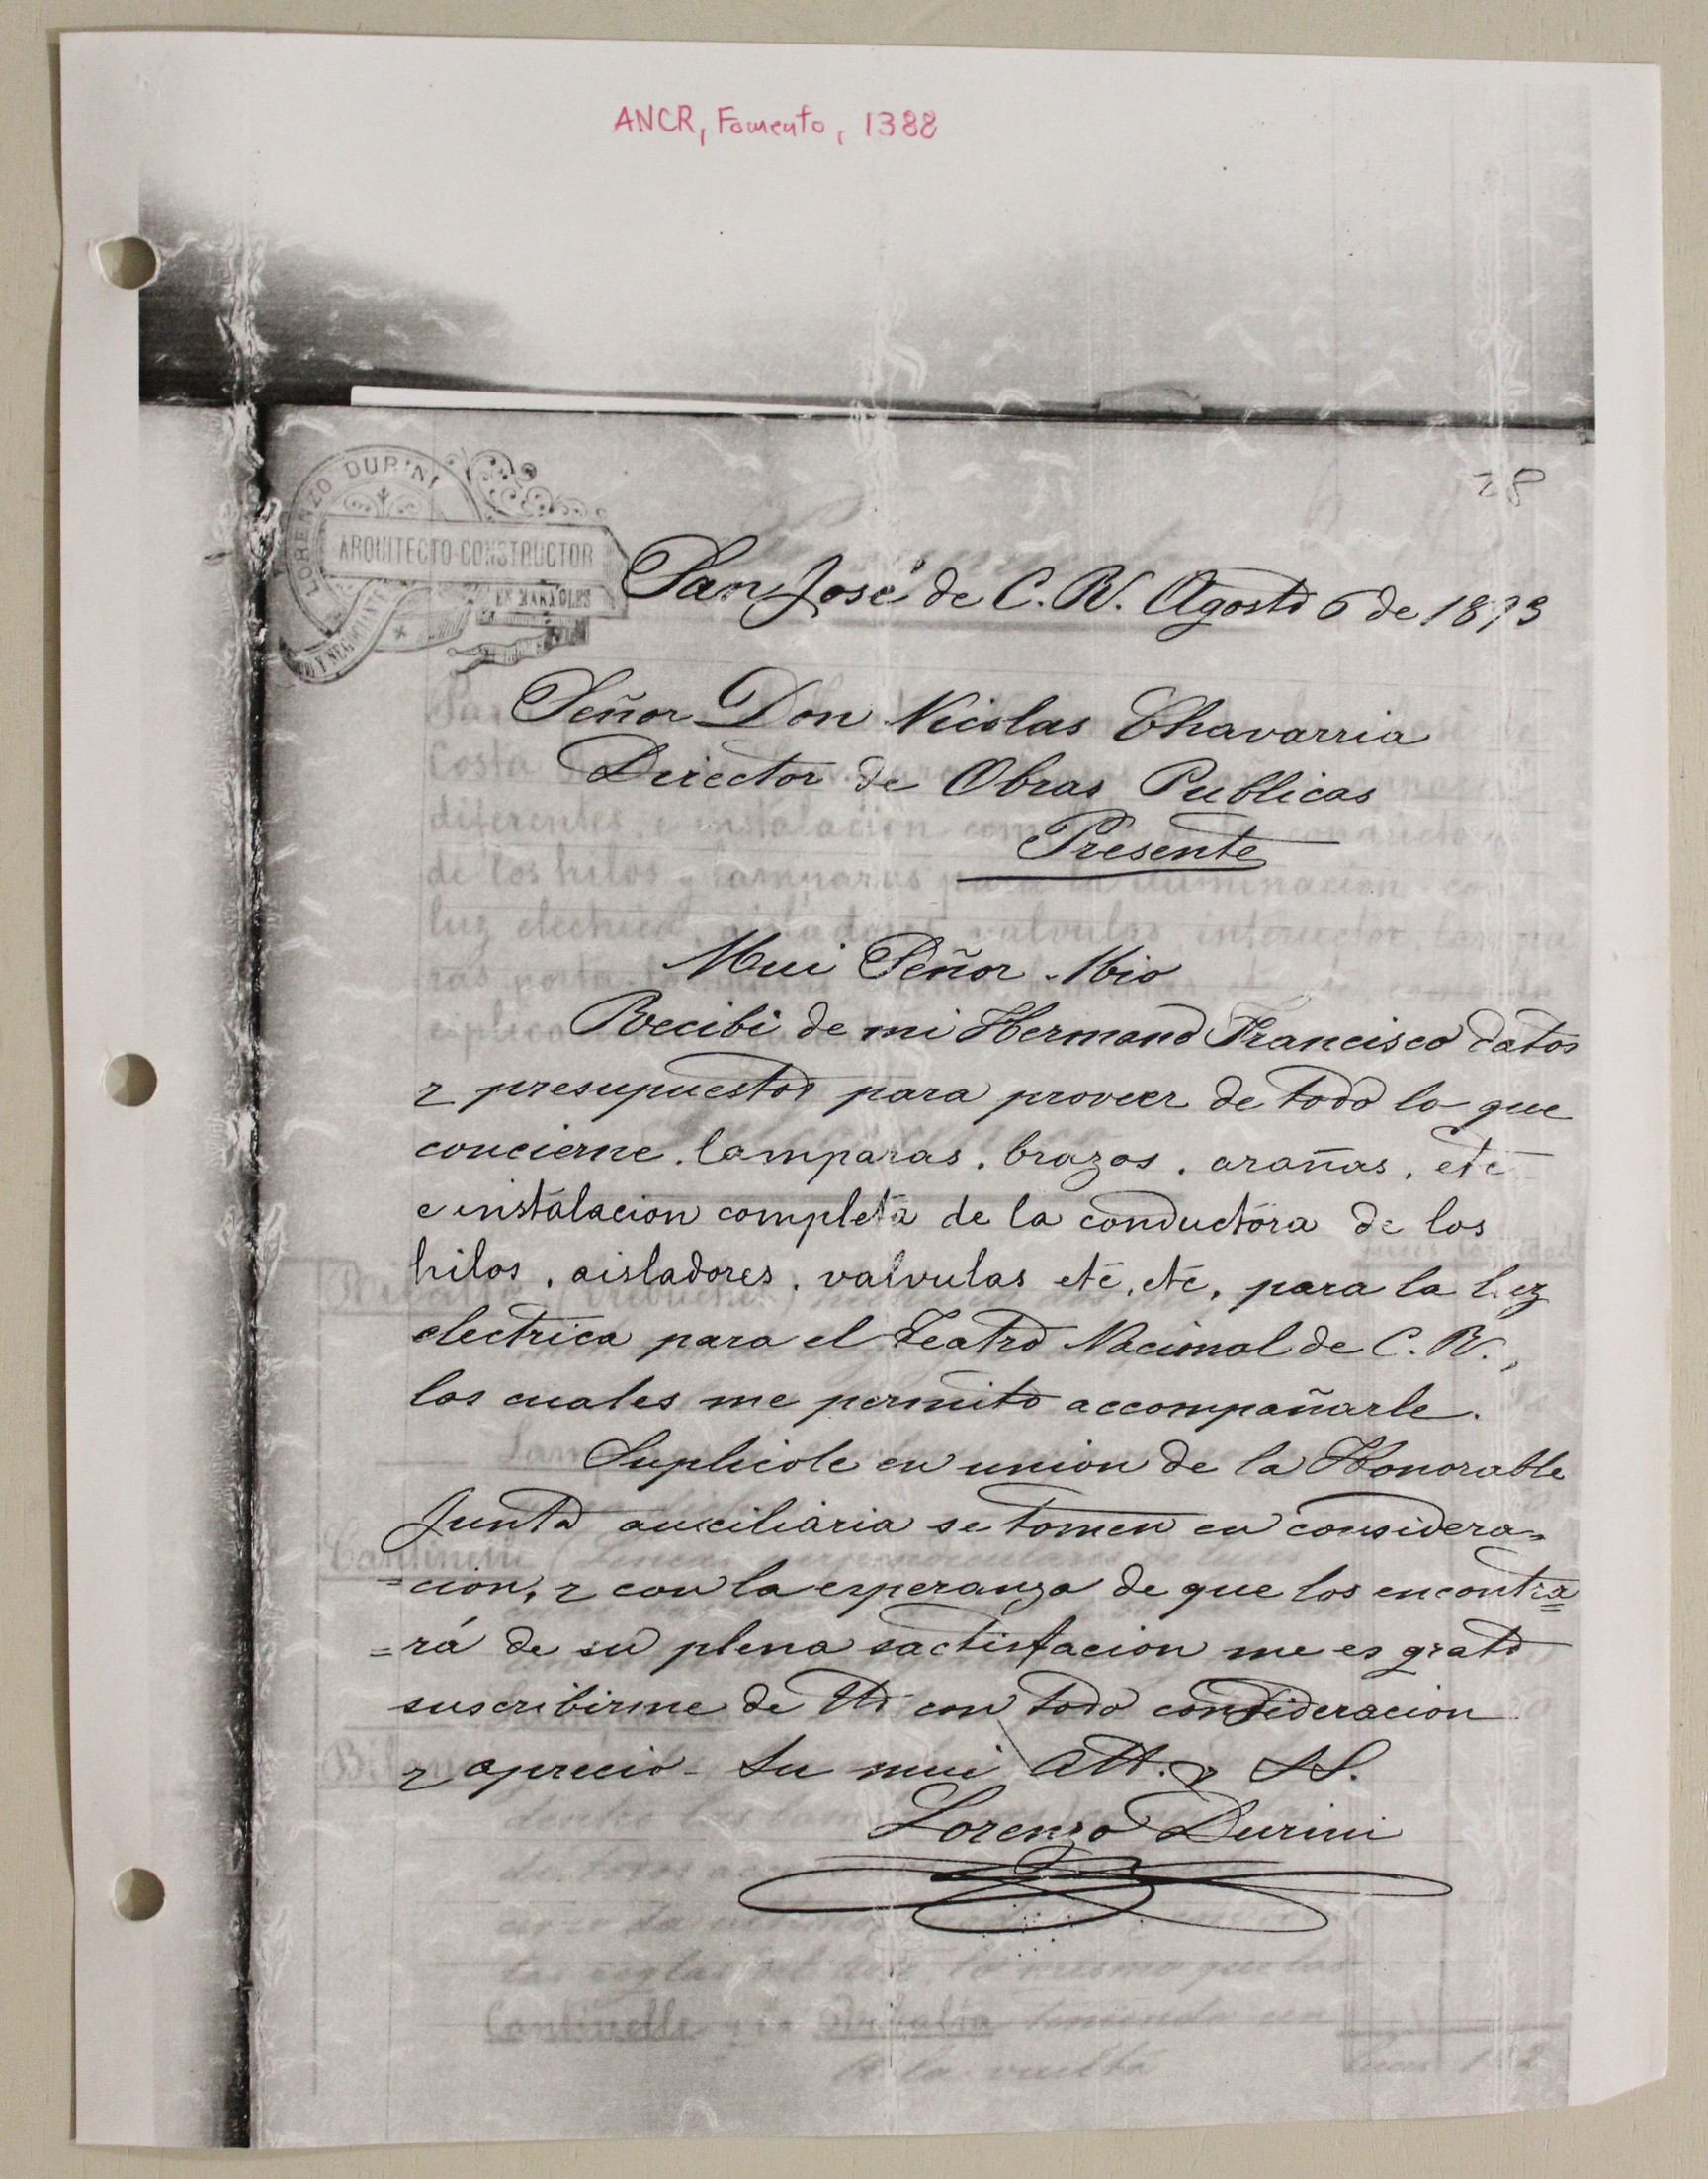 ANCR, Fomento, 1388
28
LORENZO DURINI
ARQUITECTO-CONSTRUCTOR
Y NEGOCIANTE
EN MARMOLES
San José de C. R. Agosto 6 de 1893
Señor Don Nicolas Chavarria
Director de Obras Publicas
Presente
Mui Señor Mio
Recibi de mi Hermano Francisco datos
y presupuestos para proveer de todo lo que
concierne, lamparas, brazos, arañas, etc
e instalacion completa de la conductora de los
hilos, aisladores, valvulas etc, etc, para la luz
electrica para el Teatro Nacional de C. R.,
los cuales me permito accompañarle.
Suplicole en union de la Honorable
Junta auxciliaria se tomen en considera=
=cion, y con la esperanza de que los encontra=
=rá de su plena sactisfacion me es grato
suscribirme de Ud con todo consideracion
y aprecio su mui att. y SS.
Lorenzo Durini